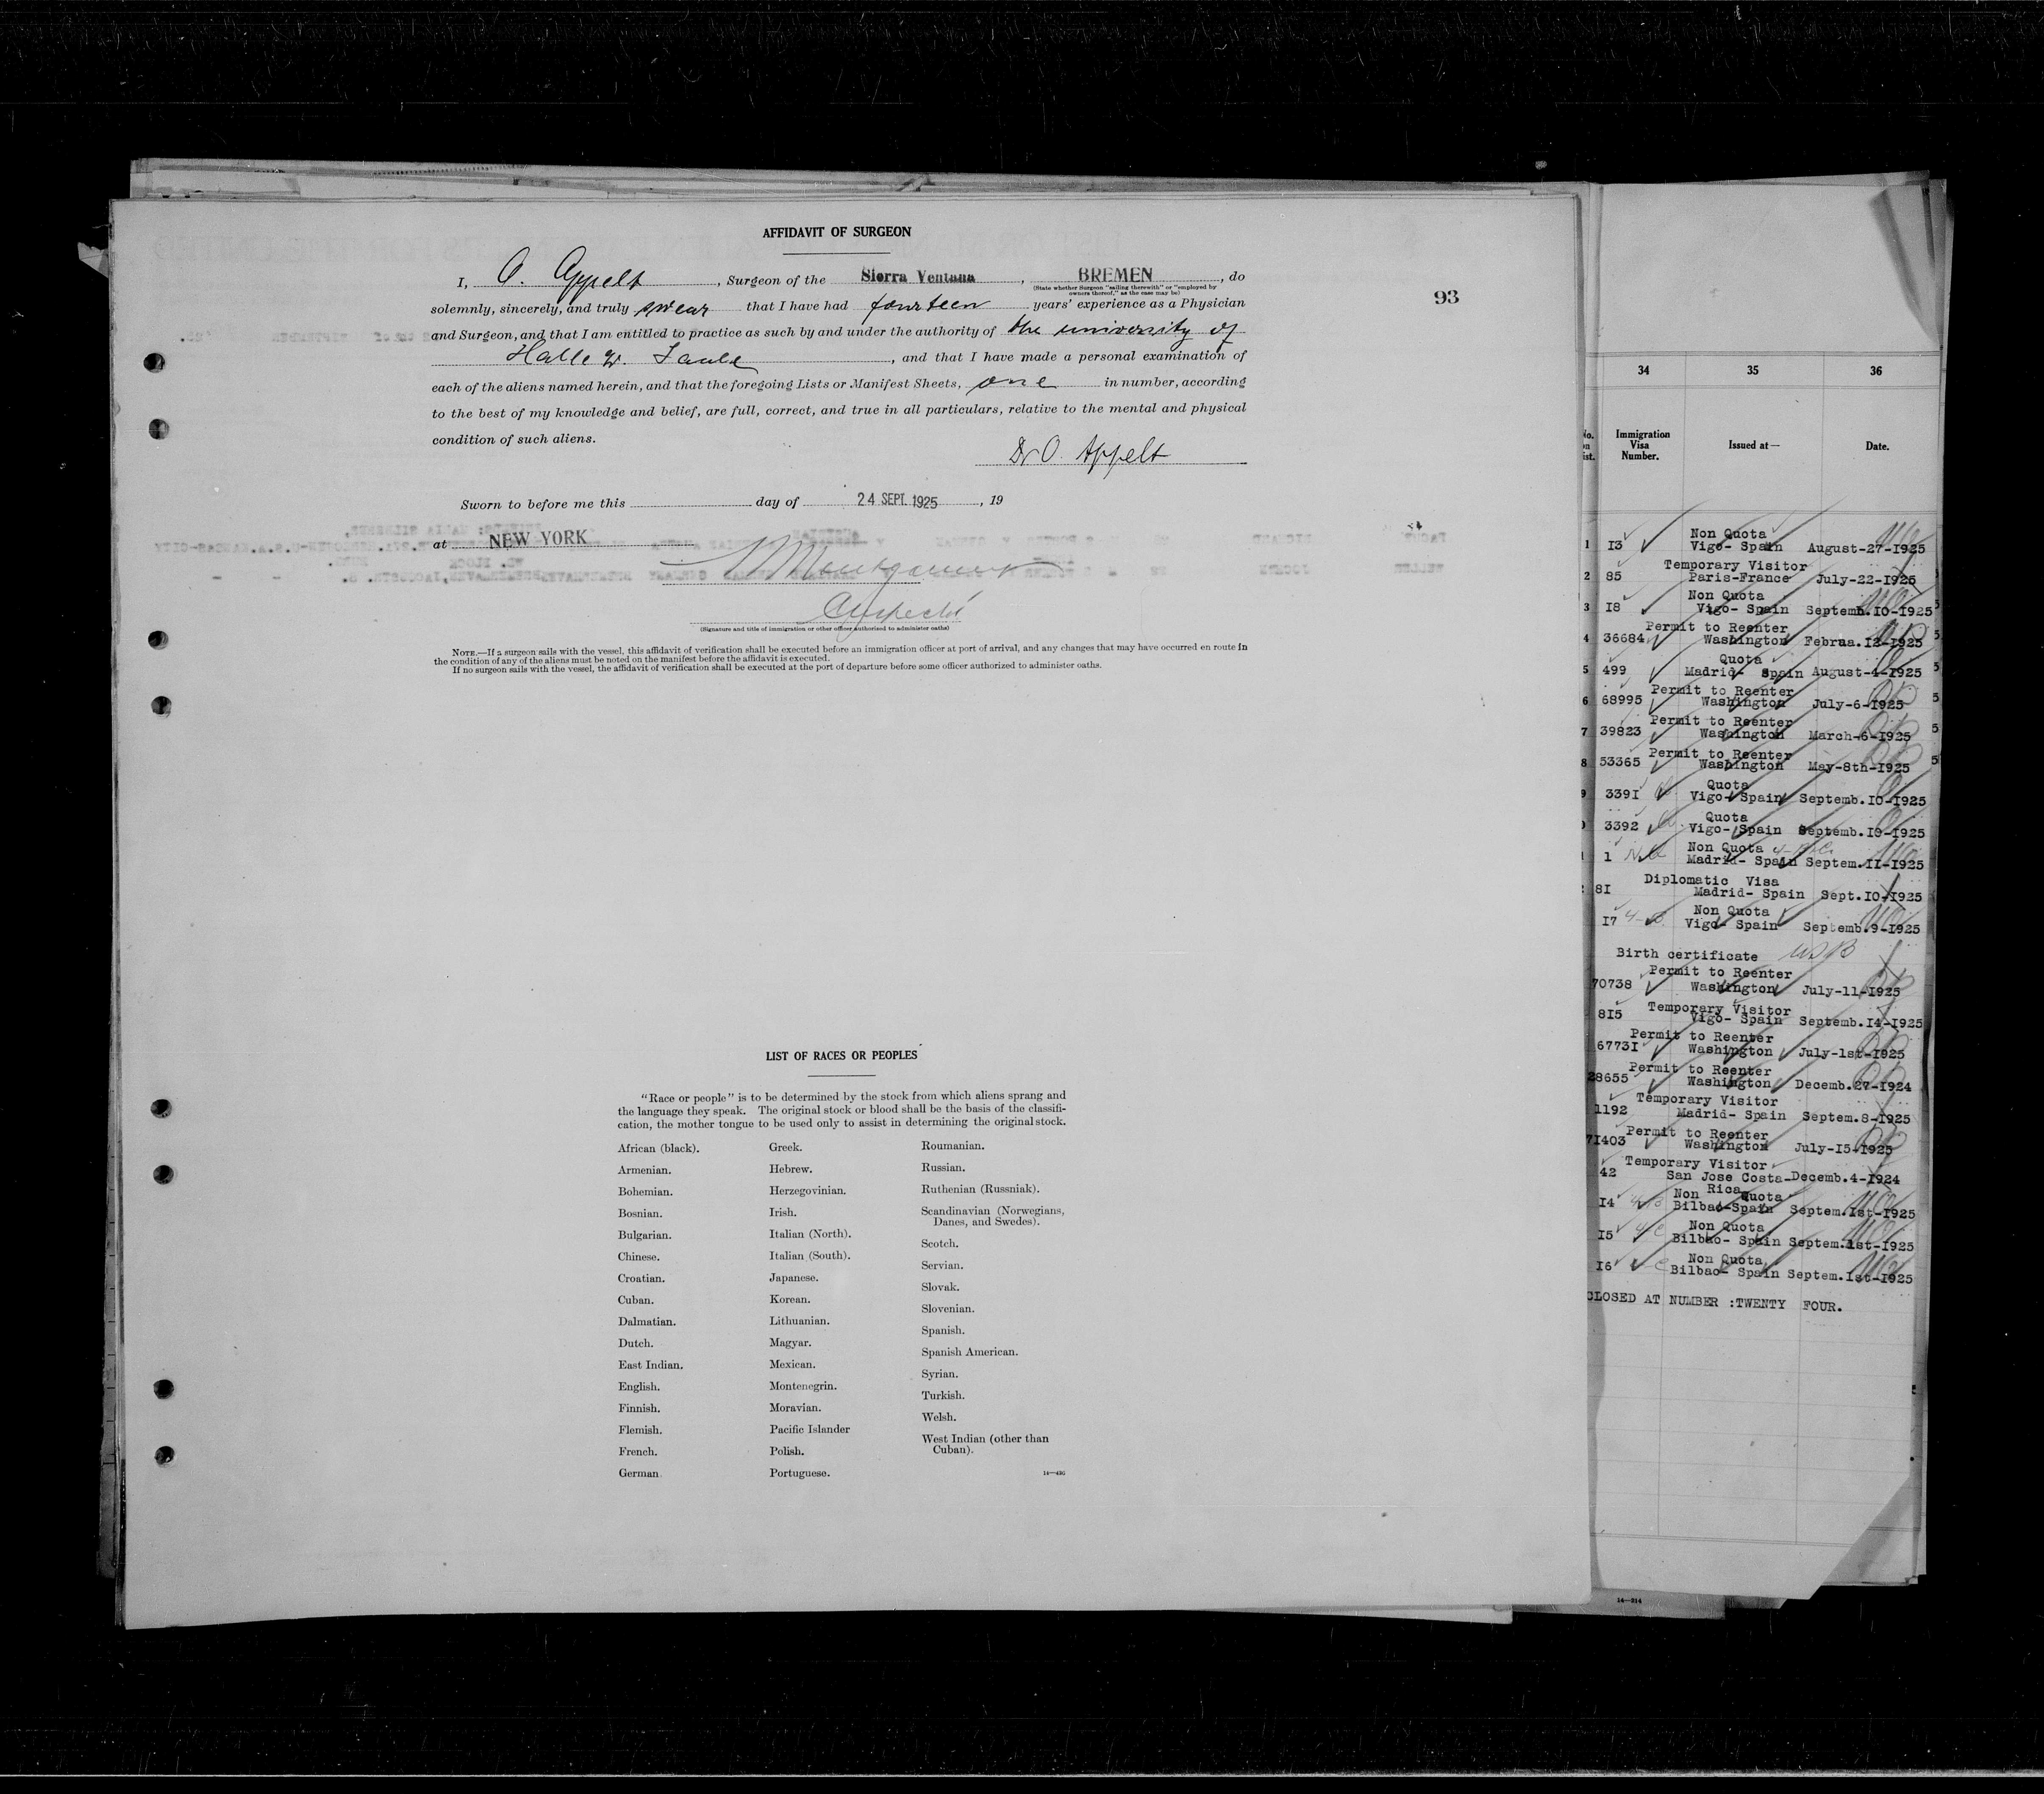 AFFIDAVIT OF SURGEON
I, O. Appelt, Surgeon of the Sierra Ventana, BREMEN, do
(State whether Surgeon "sailing therewith" or "employed by
owners thereof," as the case may be)
solemnly, sincerely, and truly swear that I have had fourteen years' experience as a Physician
and Surgeon, and that I am entitled to practice as such by and under the authority of the university of
Halle, and that I have made a personal examination of
each of the aliens named herein, and that the foregoing Lists or Manifest Sheets, one in number, according
to the best of my knowledge and belief, are full, correct, and true in all particulars, relative to the mental and physical
condition of such aliens.
Dr O. Appelt
Sworn to before me this day of 24 SEPT. 1925, 19
at NEW YORK
Montgomery
(Signature and title of immigration or other officer authorized to administer oaths)
NOTE.—If a surgeon sails with the vessel, this affidavit of verification shall be executed before an immigration officer at port of arrival, and any changes that may have occurred en route in
the condition of any of the aliens must be noted on the manifest before the affidavit is executed.
If no surgeon sails with the vessel, the affidavit of verification shall be executed at the port of departure before some officer authorized to administer oaths.
93
LIST OF RACES OR PEOPLES
"Race or people" is to be determined by the stock from which aliens sprang and
the language they speak. The original stock or blood shall be the basis of the classifi-
cation, the mother tongue to be used only to assist in determining the original stock.
African (black).
Armenian.
Bohemian.
Bosnian.
Bulgarian.
Chinese.
Croatian.
Cuban.
Dalmatian.
Dutch.
East Indian.
English.
Finnish.
Flemish.
French.
German
Greek.
Hebrew.
Herzegovinian.
Irish.
Italian (North).
Italian (South).
Japanese.
Korean.
Lithuanian.
Magyar.
Mexican.
Montenegrin.
Moravian.
Pacific Islander
Polish.
Portuguese.
Roumanian.
Russian.
Ruthenian (Russniak).
Scandinavian (Norwegians,
Danes, and Swedes).
Scotch.
Servian.
Slovak.
Slovenian.
Spanish.
Spanish American.
Syrian.
Turkish.
Welsh.
West Indian (other than
Cuban).
14—436
34 35 36
Immigration
Visa
Number.
Issued at—
Date.
Non Quota
1 13 Vigo- Spain August-27-1925
Temporary Visitor
2 85 Paris-France July-22-1925
Non Quota
3 18 Vigo- Spain Septemb.10-1925
Permit to Reenter
4 36684 Washington Februa.12-1925
Quota
5 499 Madrid- Spain August-4-1925
Permit to Reenter
6 68995 Washington July-6-1925
Permit to Reenter
7 39823 Washington March-6-1925
Permit to Reenter
8 53365 Washington May-8th-1925
Quota
9 3391 Vigo-Spain Septemb.10-1925
Quota
3392 Vigo- Spain Septemb.10-1925
Non Quota
1 Madrid- Spain Septem.11-1925
Diplomatic Visa
81 Madrid- Spain Sept.10-1925
Non Quota
17 Vigo- Spain Septemb.9-1925
Birth certificate USB
Permit to Reenter
70738 Washington July-11-1925
Temporary Visitor
815 Vigo- Spain Septemb.14-1925
Permit to Reenter
67731 Washington July-1st-1925
Permit to Reenter
28655 Washington Decemb.27-1924
Temporary Visitor
1192 Madrid- Spain Septem.8-1925
Permit to Reenter
71403 Washington July-15-1925
Temporary Visitor
42 San Jose Costa- Decemb.4-1924
Rica
Non Quota
14 Bilbao-Spain Septem.1st-1925
Non Quota
15 Bilbao- Spain Septem.1st-1925
Non Quota
16 Bilbao- Spain Septem.1st-1925
CLOSED AT NUMBER :TWENTY FOUR.
14—214